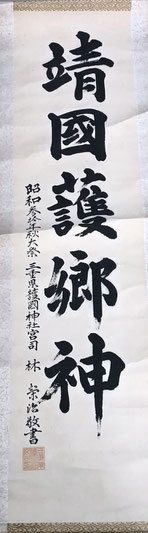 靖國護郷神
昭和参拾年秋大祭 三重県護國神社宮司 林 栄治敬書